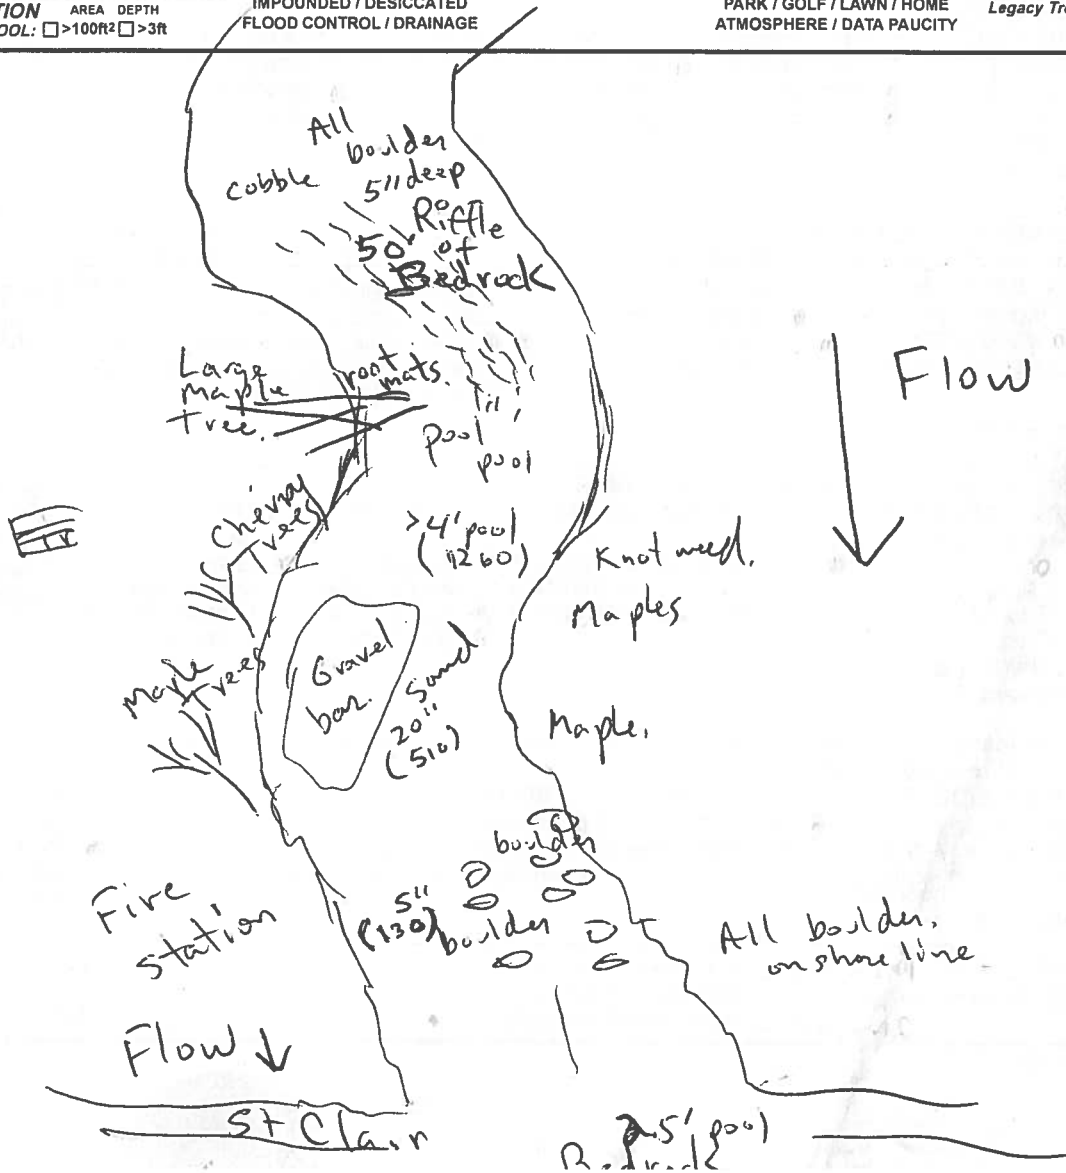 TION AREA DEPTH
OOL: □>100ft² □>3ft
IMPOUNDED / DESICCATED
FLOOD CONTROL / DRAINAGE
PARK / GOLF / LAWN / HOME
ATMOSPHERE / DATA PAUCITY
Legacy Tre
All
boulder
cobble
5" deep
Riffle
50' of
Bedrock
Large
maple
Tree.
root
mats.
Flow
pool
pool
Cherry
Trees
>4' pool
(1260)
Knot weed.
Maples
Maple
Trees
Gravel
bar.
Sand
20"
(510)
Maple.
boulder
5"
(130)
boulder
Fire
station
All boulder.
on shore line
Flow
St Clair
2.5' pool
Bedrock